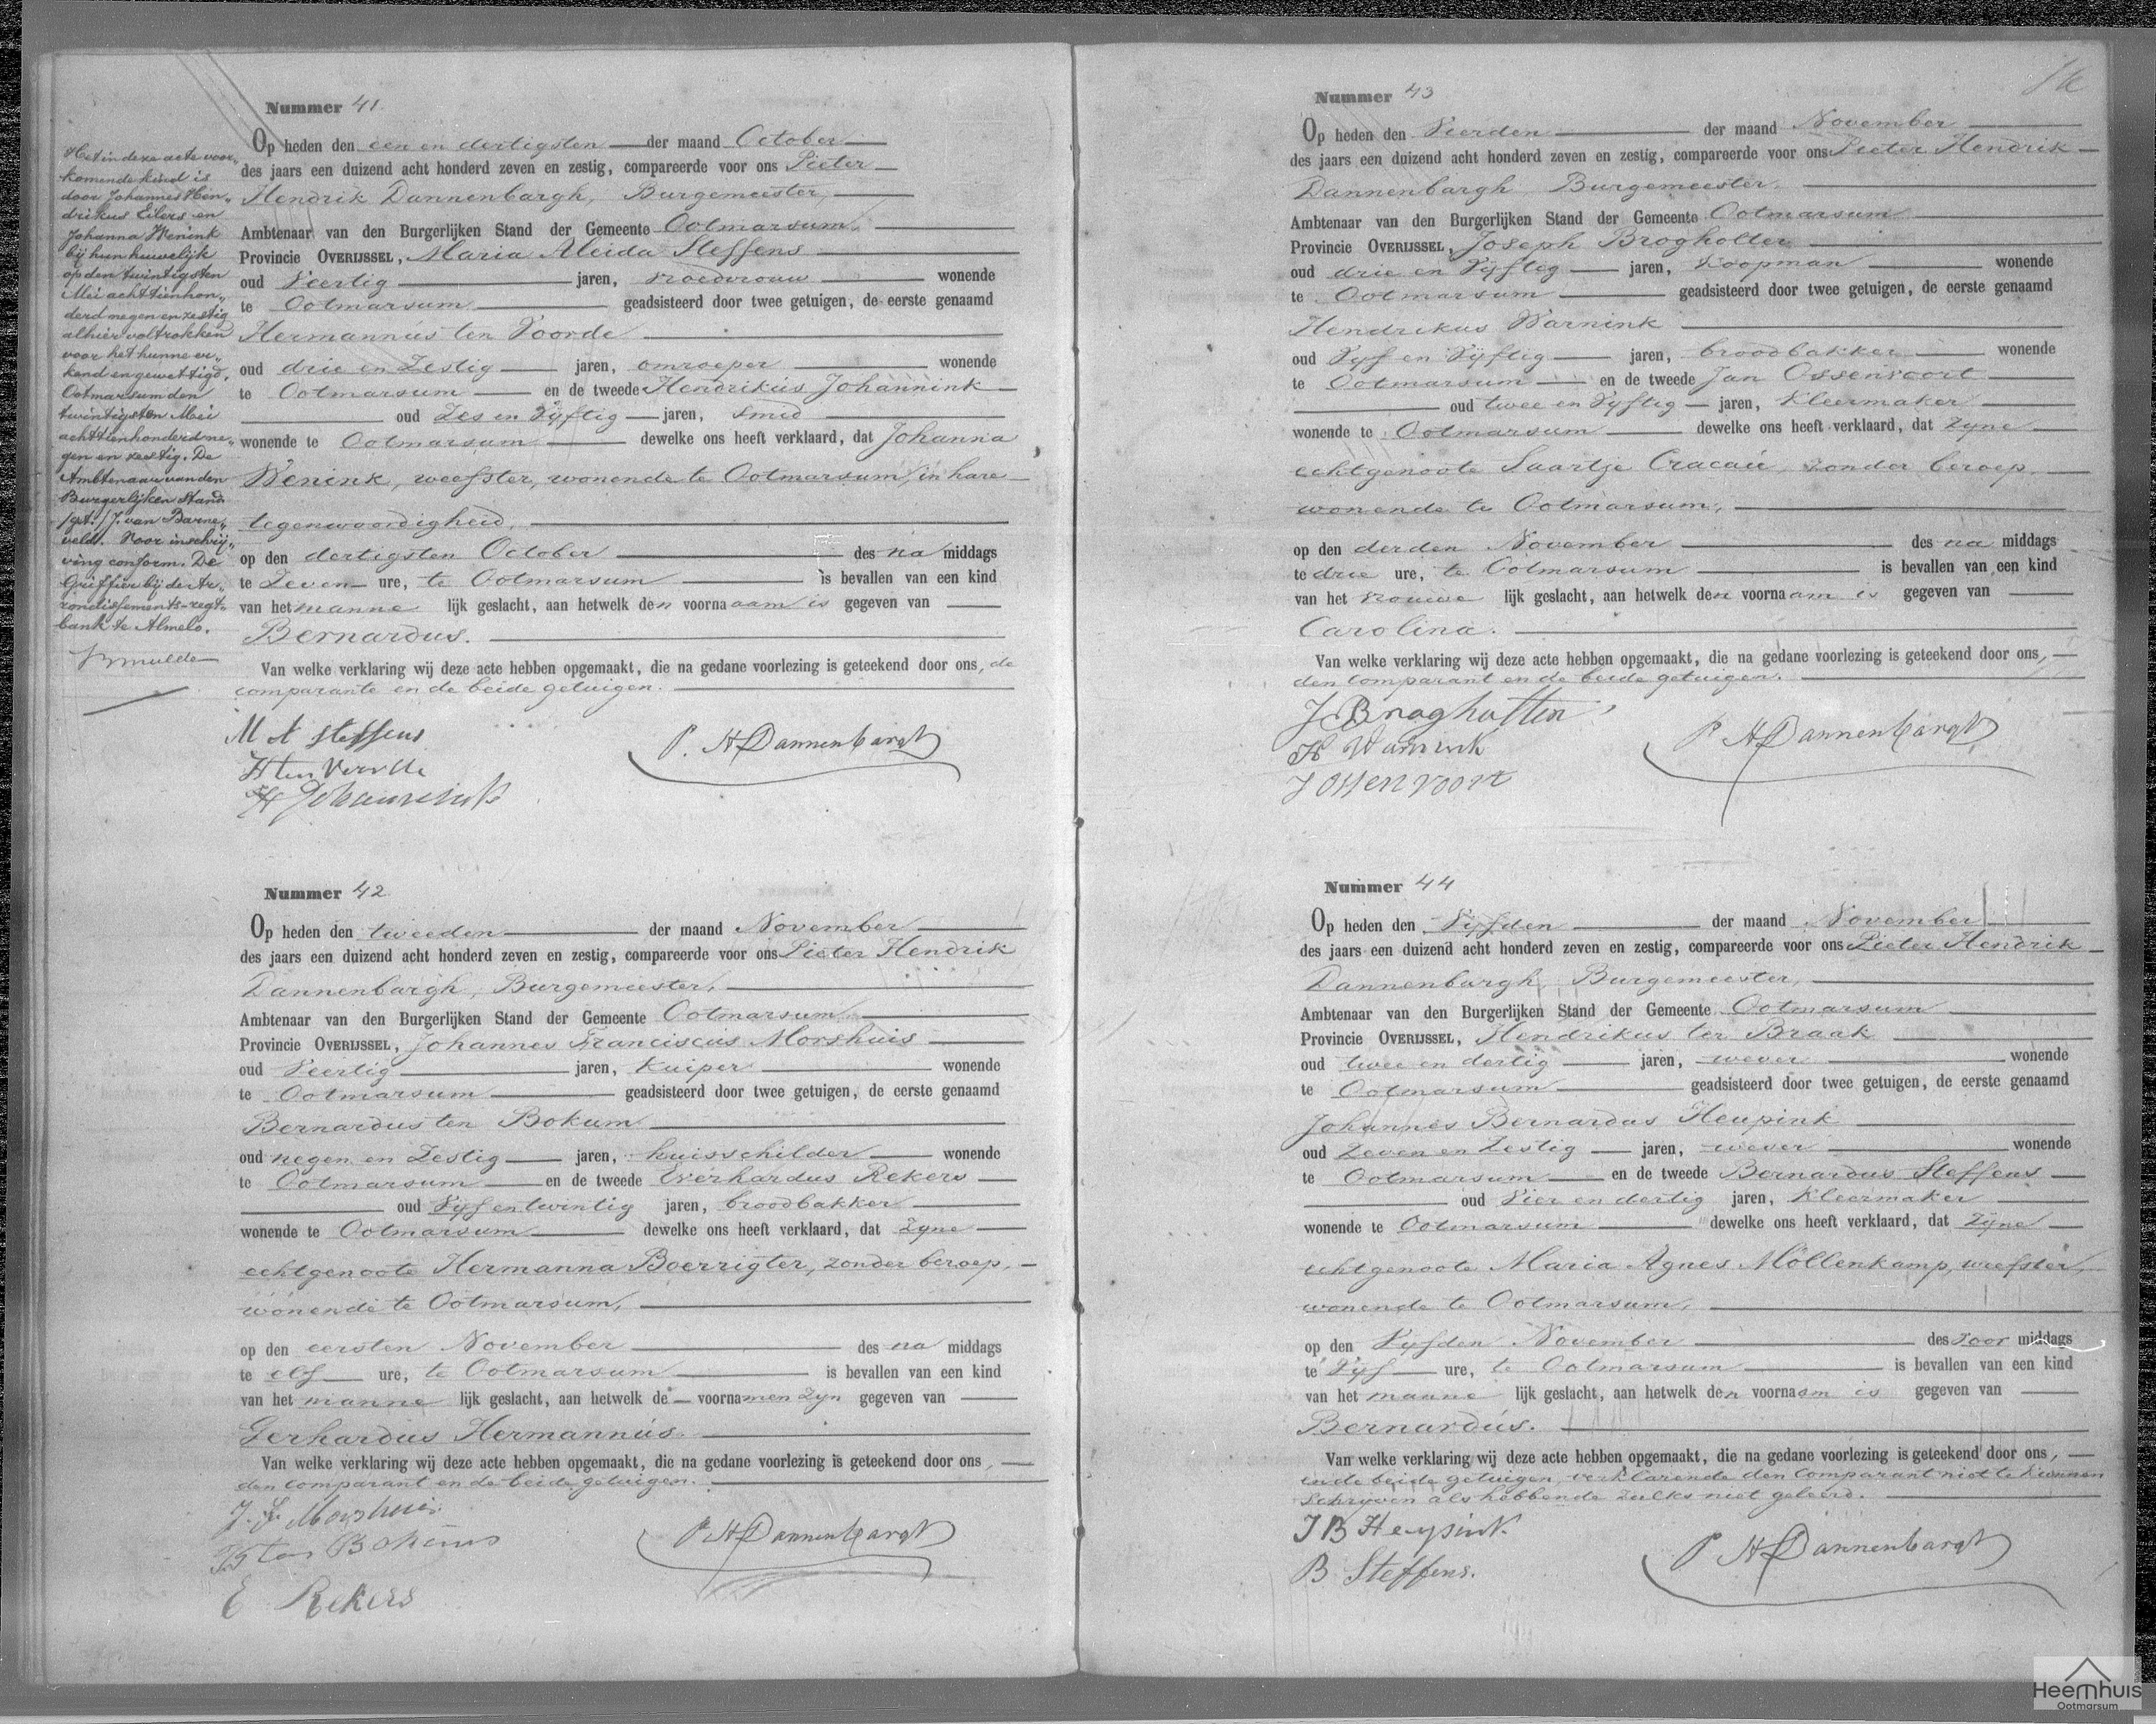 Nummer 41
Op heden den een en dertigsten der maand October
des jaars een duizend acht honderd zeven en zestig, compareerde voor ons Pieter
Hendrik Dannenbargh, Burgemeester,
Ambtenaar van den Burgerlijken Stand der Gemeente Ootmarsum,
Provincie OVERIJSSEL, Maria Aleida Steffens
oud Veertig jaren, vroedvrouw wonende
te Ootmarsum geadsisteerd door twee getuigen, de eerste genaamd
Hermannus ten Voorde
oud drie en Zestig jaren, omroeper wonende
te Ootmarsum en de tweede Hendrikus Johannink
oud Zes en Vijftig jaren, smid
wonende te Ootmarsum dewelke ons heeft verklaard, dat Johanna
Wenink, weefster, wonende te Ootmarsum, in hare
tegenwoordigheid,
op den dertigsten October des na middags
te Zeven ure, te Ootmarsum is bevallen van een kind
van het manne lijk geslacht, aan hetwelk den voornaam is gegeven van
Bernardus.
Van welke verklaring wij deze acte hebben opgemaakt, die na gedane voorlezing is geteekend door ons, de
comparante en de beide getuigen.
M A Steffens
P. H Dannenbargh
H ten Voorde
H Johannink
Het in deze acte voor„
komende kind is
door Johannes Hen„
drikus Eilers en
Johanna Wenink
bij hun huwelijk
op den twintigsten
Mei achttienhon„
derd negen en zestig
alhier voltrokken
voor het hunne er„
kend en gewettigd.
Ootmarsum den
twintigsten Mei
achttienhonderd ne„
gen en zestig. De
Ambtenaar van den
Burgerlijken Stand
/get./ J. van Barne„
veld. Voor inschrij„
ving conform. De
Griffier bij de Ar„
rondissements-regt„
bank te Almelo.
Nummer 42
Op heden den tweeden der maand November
des jaars een duizend acht honderd zeven en zestig, compareerde voor ons Pieter Hendrik
Dannenbargh, Burgemeester,
Ambtenaar van den Burgerlijken Stand der Gemeente Ootmarsum
Provincie OVERIJSSEL, Johannes Franciscus Morshuis
oud Veertig jaren, Kuiper wonende
te Ootmarsum geadsisteerd door twee getuigen, de eerste genaamd
Bernardus ten Bokum
oud negen en Zestig jaren, huisschilder wonende
te Ootmarsum en de tweede Everhardus Rekers
oud Vijf en twintig jaren, broodbakker
wonende te Ootmarsum dewelke ons heeft verklaard, dat Zyne
echtgenoote Hermanna Boerrigter, zonder beroep,
wonende te Ootmarsum,
op den eersten November des na middags
te elf ure, te Ootmarsum is bevallen van een kind
van het manne lijk geslacht, aan hetwelk de voornamen zyn gegeven van
Gerhardus Hermannus.
Van welke verklaring wij deze acte hebben opgemaakt, die na gedane voorlezing is geteekend door ons,
den comparant en de beide getuigen.
J. F. Morshuis
P. H Dannenbargh
E Rekers
Nummer 43
Op heden den Vierden der maand November
des jaars een duizend acht honderd zeven en zestig, compareerde voor ons Pieter Hendrik
Dannenbargh Burgemeester,
Ambtenaar van den Burgerlijken Stand der Gemeente Ootmarsum
Provincie OVERIJSSEL, Joseph Brogholter
oud drie en Vijftig jaren, Koopman wonende
te Ootmarsum geadsisteerd door twee getuigen, de eerste genaamd
Hendrikus Warnink
oud Vyf en Vijftig jaren, broodbakker wonende
te Ootmarsum en de tweede Jan Ossenvoort
oud twee en Vyftig jaren, Kleermaker
wonende te Ootmarsum dewelke ons heeft verklaard, dat Zyne
echtgenoote Saartje Cracau, zonder beroep
wonende te Ootmarsum,
op den derden November des na middags
te drie ure, te Ootmarsum is bevallen van een kind
van het vrouwe lijk geslacht, aan hetwelk den voornaam is gegeven van
Carolina.
Van welke verklaring wij deze acte hebben opgemaakt, die na gedane voorlezing is geteekend door ons,
den Comparant en de beide getuigen.
P H Dannenbargh
H Warnink
J Ossenvoort
Nummer 44
Op heden den Vyfden der maand November
des jaars een duizend acht honderd zeven en zestig, compareerde voor ons Pieter Hendrik
Dannenbargh, Burgemeester,
Ambtenaar van den Burgerlijken Stand der Gemeente Ootmarsum
Provincie OVERIJSSEL, Hendrikus ter Braak
oud twee en dertig jaren, wever wonende
te Ootmarsum geadsisteerd door twee getuigen, de eerste genaamd
Johannes Bernardus Heupink
oud Zeven en Zestig jaren, wever wonende
te Ootmarsum en de tweede Bernardus Steffens
oud Vier en dertig jaren, Kleermaker
wonende te Ootmarsum dewelke ons heeft verklaard, dat Zijne
echtgenoote Maria Agnes Möllenkamp, weefster,
wonende te Ootmarsum,
op den Vyfden November des voor middags
te Vyf ure, te Ootmarsum is bevallen van een kind
van het manne lijk geslacht, aan hetwelk den voornaam is gegeven van
Bernardus.
Van welke verklaring wij deze acte hebben opgemaakt, die na gedane voorlezing is geteekend door ons,
en de beide getuigen, verklarende den Comparant niet te kunnen
schryven als hebbende zulks niet geleerd.
J B Heupink
P H Dannenbargh
B Steffens.
Heemhuis
Ootmarsum